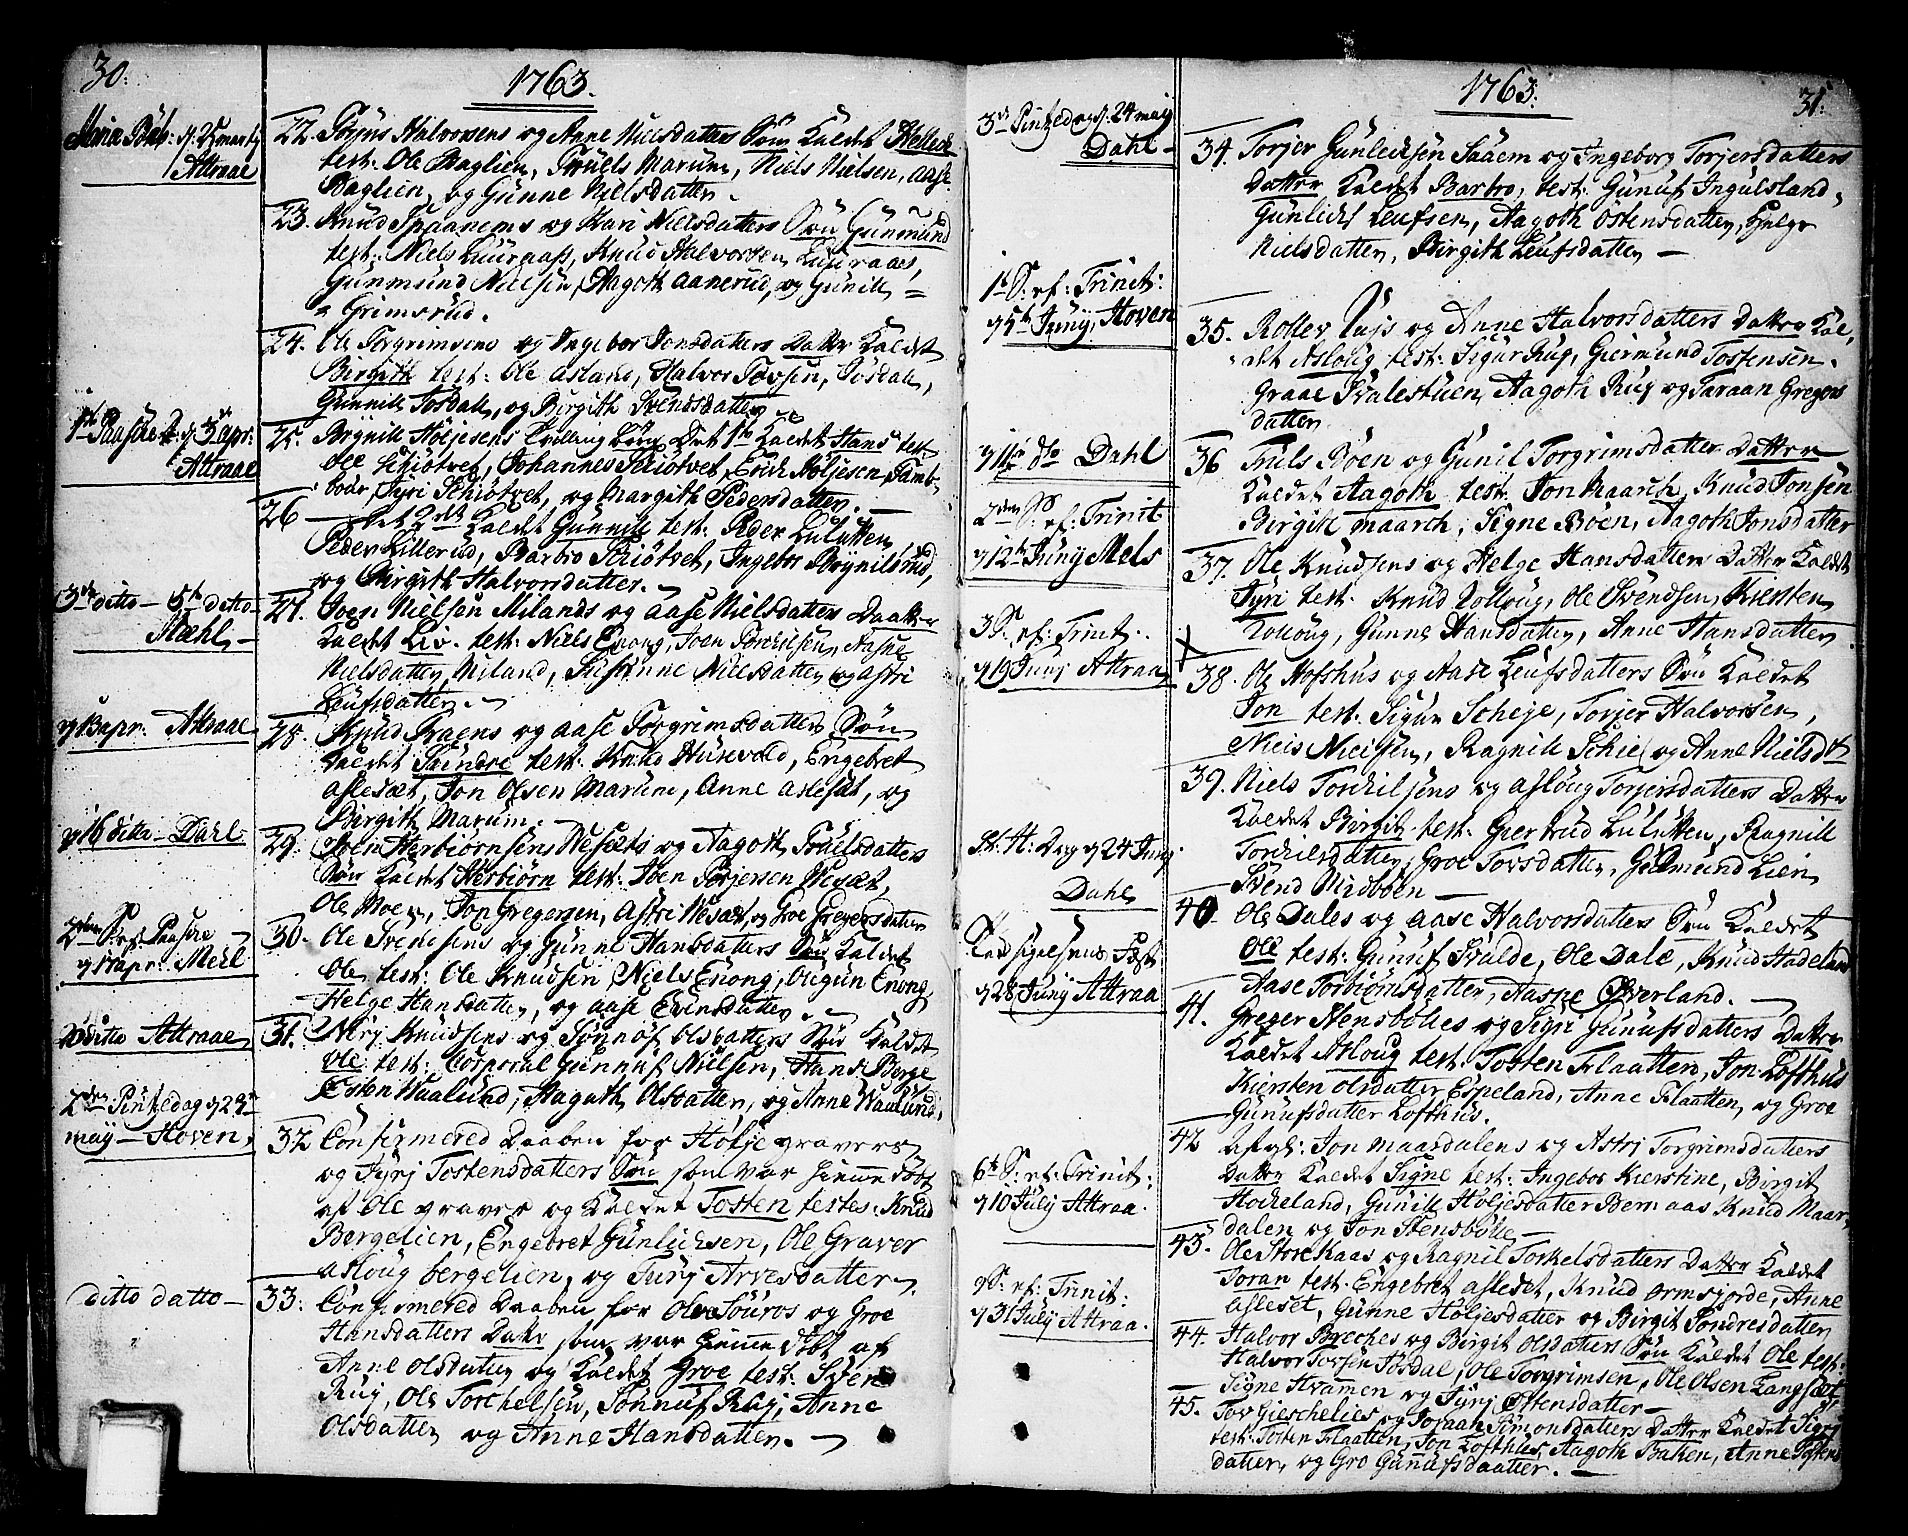 30.
1763.
Mariæ Beb: d: 25 marty
Attraae
22. Tørjus Halvorsens og Anne Nielsdatters Søn Kaldet
test: Ole Baglien, Truels Marum, Niels Nielsen, Aase
Baglien, og Gunne Nielsdatter.
23. Knud Spaanems og Kari Nielsdatters Søn Gunmund
test: Niels Luuraas, Knud Halvorsen Luuraas,
Gunmund Nielsen, Aagoth Aanerud, og Gunill
Grimsrud.
24. Ole Torgrimsens og Ingebor Jonsdatters Datter Kaldet
Birgith test: Ole Asland, Halvor Tovsen, Tosdall,
Gunnill Tosdall, og Birgith Svendsdatter
1ste Paaske d. 3 apr:
Attraae
25. Brynill Høljesens Tvilling børn Det 1te Kaldet Hans test
Ole Schiøtvet, Johannes Schiøtvet, Erich Høljesen, Tamb-
bour, Jyri Schiøtvet, og Margith Pedersdatter. —
26 — Det 2det Kaldet Gunnill test: Peder Lulutten
Peder Lillerud, Barbro Schiøtvet, Ingebor Brynilsrud,
og Birgith Halvorsdatter. —
3die ditto — 5te ditto
Mæhl —
27. Joen Nielsen Milands og Aase Nielsdatter Daatter
Kaldet Liv. test: Niels Enong, Joen Torchilsen, Aasne
Nielsdatter Miland, Susanne Nielsdatter og Astri
Leufsdatter. —
13 apr. Attraae
28. Knud Traens og Aase Torgrimsdatter Søn
Kaldet Søndre test: Knud Husevold, Engebret
Aslesæt, Jon Olsen Marum, Anne Aslesæt, og
Birgith Marum. —
16 ditto — Dahl
29. Joen Herbiørnsens Wesæts og Aagoth Truelsdatters
Søn Kaldet Herbiørn test: Joen Torjersen Wesæt,
Ole Moen, Jon Gregersen, Astri Wesæt, og Groe Gregersdatter
2den S: ef: Paaske
17 apr: Meel
30. Ole Svendsens og Gunne Hansdatters Søn Kaldet
Ole test: Ole Knudsen, Niels Enong, Olegun Enong,
Helge Hansdatter, og Aase Evensdatter. —
ditto Attraae
31. Nirj Knudsens og Sønnof Olsdatters Søn Kaldet
Ole test: Corporal Gunnuf Nielsen, Hans Berge
Esten Waalund, Aagoth Olsdatter, og Anne Waalund.
2den Pintzedag 23
may — Hoven.
32 Confirmered Daaben for Høljе gravers
og Jyrj Tostensdatters Søn som var hiemme Døbt
af Ole graver og Kaldet Tosten testes: Knud
Bergelien, Engebret Gunlichsen, Ole Graver
Asloug bergelien, og Turj Arvesdatter.
ditto datto —
33: Confirmered Daaben for Ole Souros og Groe
Hansdatters Datter som var hiemme Døbt af
Anne Olsdatter og Kaldet Groe test: Sven
Rug, Ole Torchelsen, Sønnuf Rug, Anne
Olsdatter og Anne Hansdatter. —
1763.
31.
3die Pintzedag d. 24 maij
Dahl —
34. Torjer Gunlechsen Saaem og Ingeborg Torjersdatters
Datter Kaldet Barbro, test: Gunuf Ingulsland,
Gunlich Leufsen, Aagoth Østensdatter, Helge
Nielsdatter, Birgith Leufsdatter —
1te S: ef: Trinit:
5te Juny, Hoven
35. Rollev Rujs og Anne Halvorsdatters Datter Kal-
det Asloug test: Sigur Rug, Giermund Tostensen.
Graae Svalestuen, Aagoth Rug og Taraan Gregers
datter
11te do Dahl
36 Truls Bøen og Gunil Torgrimsdatter Datter
Kaldet Aagoth test: Jon Maarch, Knud Jonsen
Birgit Maarch, Signe Bøen, Aagoth Jonsdatter
2den S: ef: Trinit:
12te Juny Mels
37. Ole Knudsens og Helge Hansdatter Datter Kaldet
Jyri test: Knud Kolloug, Ole Svendsen, Kiersten
Kolloug, Gunne Hansdatter, Anne Hansdatter
3 S: ef: Trinit:
19 Junj Attraa
38. Ole Hofshus og Aase Leufsdatters Søn Kaldet
Jon test: Sigur Scheje, Torjer Halvorsen,
Niels Nielsen, Ragnill Schie og Anne Nielsd
39. Niels Torchilsens og Asloug Torjersdatters Datter
Kaldet Birgit test: Giertrud Lulutten, Ragnill
Torchelsdatter, Groe Tovsdatter, Gudmund Lien
Svend Midbøen —
St. H: Dag 24 Junj
Dahl
40 Ole Dales og Aase Halvorsdatters Søn Kaldet
Ole test: Gunuf Svalde, Ole Dale, Knud Hadeland
Aase Torbiørnsdatter, Aasne Øverland. —
28 Juny Attraa
41. Greger Stensbøles og Sigri Gunufsdatters Datter
Kaldet Asloug test: Tosten Flaatten, Jon Lofthus
Kiersten Olsdatter Espeland, Anne Flaatten, og Groe
Gunufsdatter Lofthus.
42 Jon Maardalens og Astrj Torgrimsdatters
Datter Kaldet Signe test: Ingebor Kierstine, Birgit
Hockeland, Gunill Høljesdatter Bern aas Knud Maar-
dalen og Jon Stensbølle —
6te S: ef: Trinit:
10 July Attraa.
43. Ole Store Kaas og Ragnil Torkelsdatters Datter Kaldet
Toran test: Engebret Asleset, Knud Ormsjorde, Anne
Asleset, Gunne Høljesdatter og Birgit Søndresdatter
9 S: ef: Trinit:
31 July Attraa.
44. Halvor Breches og Birgit Olsdatters Søn Kaldet Ole test:
Halvor Tovsen Tosdal, Ole Torgrimsen, Ole Olsen Langsæt
Signe Hvammen og Jyrj Ostensdatter —
45. Tov Gieschelies og Joraan Simonsdatters Datter Kaldet Sigrj
test: Tosten Flaatten, Jon Lofthus, Aagoth Bakken, Anne Testens
datter, og Gro Gunufsdaatter. —